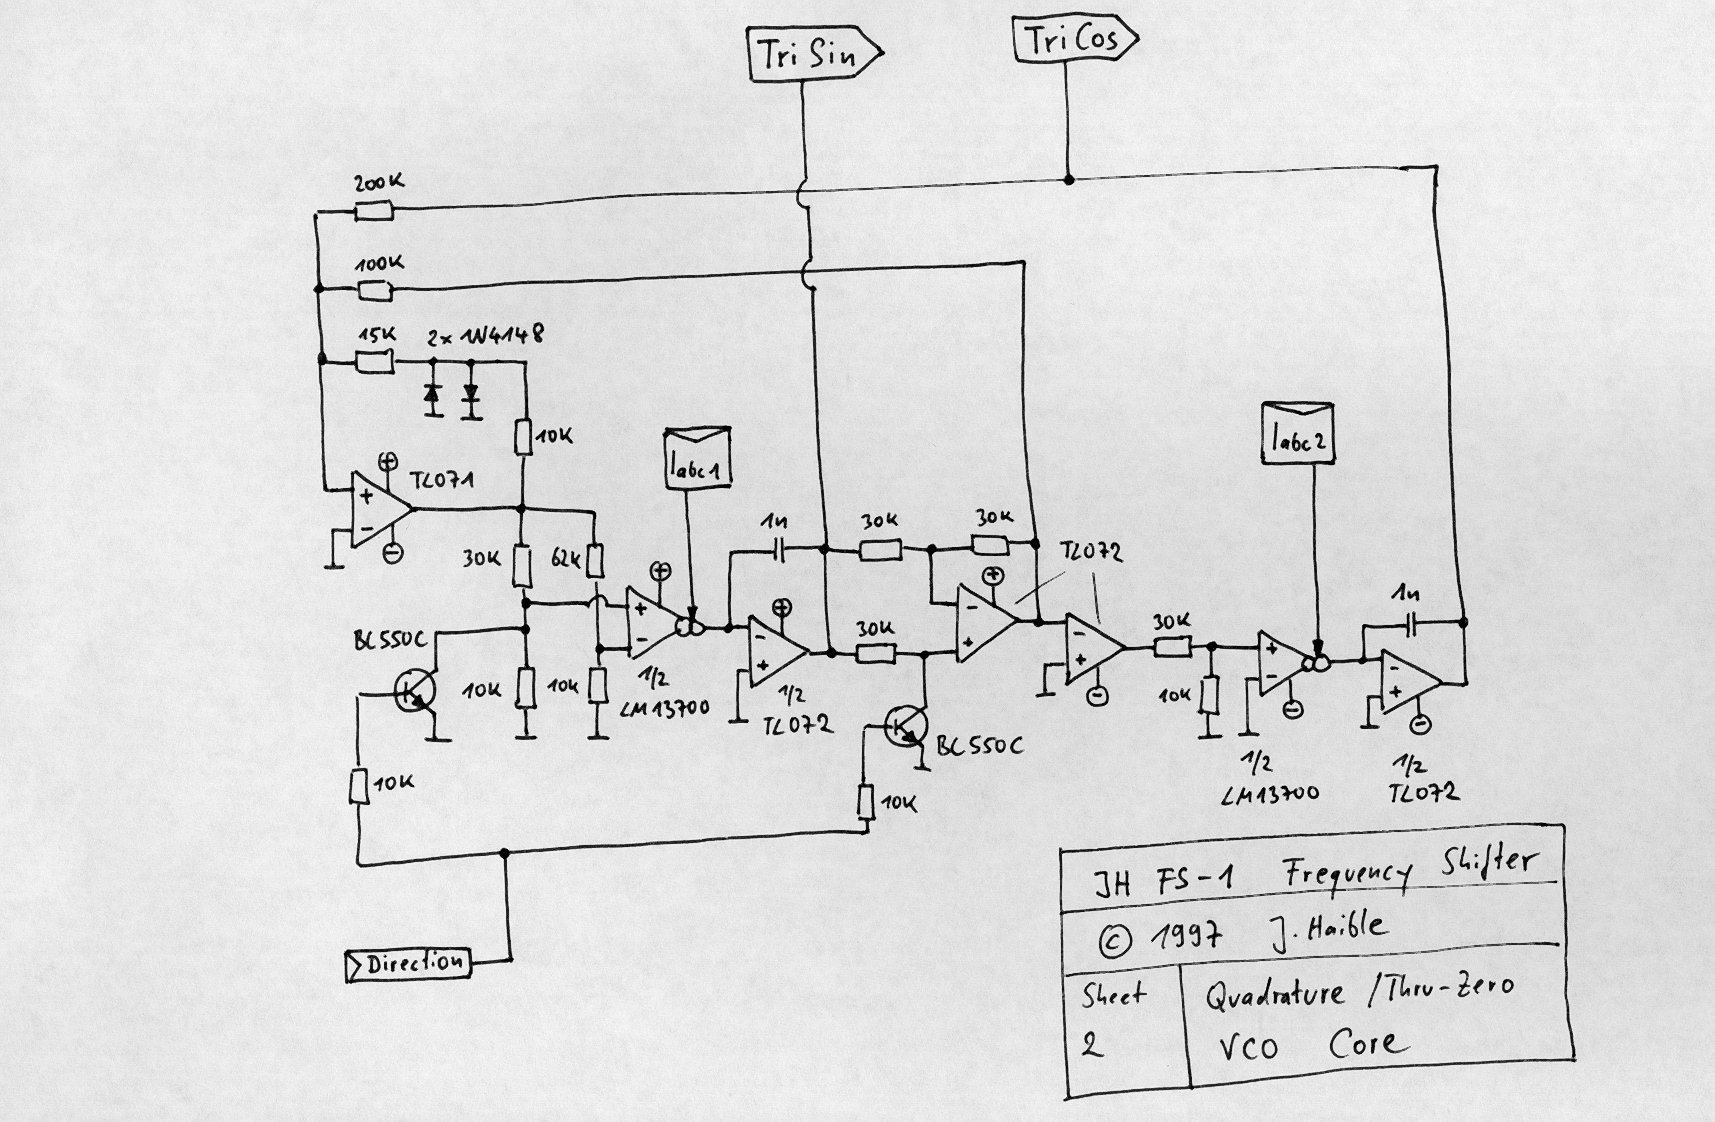 Tri Sin
Tri Cos
200K
100K
15K
2x 1N4148
10K
+
TL071
+
-
-
Iabc1
Iabc2
1n
30K
30K
TL072
30K
62K
+
+
+
1n
BC550C
+
-
-
+
-
+
30K
-
+
30K
+
-
-
+
10K
10K
1/2
LM13700
1/2
TL072
-
10K
-
-
BC550C
10K
10K
1/2
LM13700
1/2
TL072
Direction
JH FS-1 Frequency Shifter
© 1997 J. Haible
Sheet
2
Quadrature / Thru-Zero
VCO Core